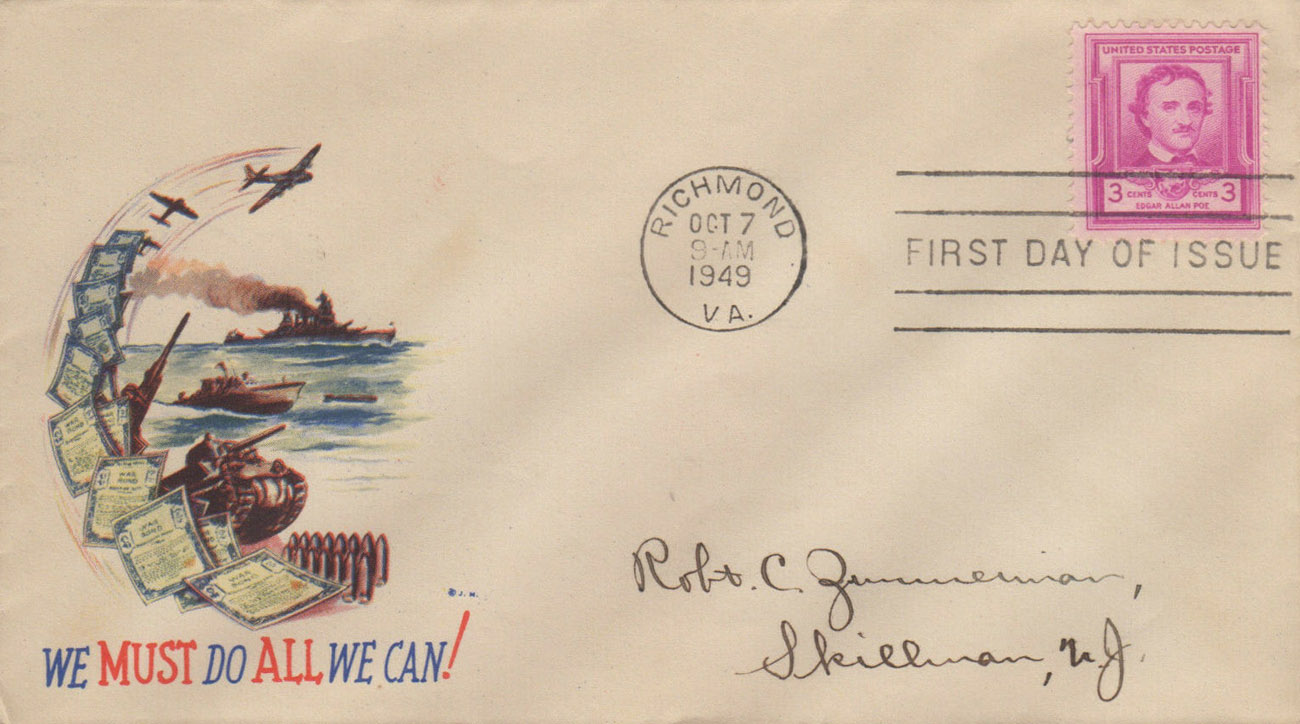 UNITED STATES POSTAGE
3 CENTS CENTS 3
EDGAR ALLAN POE
RICHMOND
OCT 7
9-AM
1949
VA.
FIRST DAY OF ISSUE
WAR
BOND
WAR
BOND
WAR
BOND
WAR
BOND
© J.H.
WE MUST DO ALL WE CAN!
Robt. C. Zimmerman,
Skillman, N.J.